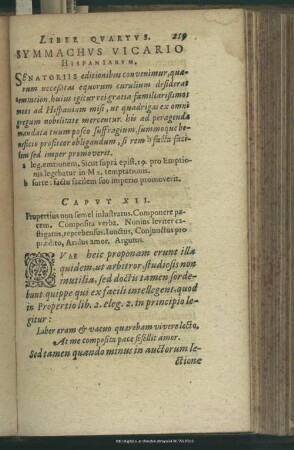 LIBER QVARTVS. 219
SYMMACHVS VICARIO
HISPANIARVM.
SENATORIIS editionibus convenimur, quarum
necessitas equorum curulium desiderat
emtionem, huius igitur rei gratia familiarissimos
meos ad Hispaniam misi, ut quadrigas ex omni
gregum nobilitate mercentur. his ad peragenda
mandata tuum posco suffragium, summoque beneficio
profiteor obligandum, si rem b factu facilem
sed imper promoverit.
a leg. emtionem, Sicut suprà epist. 19. pro Emptionis
legebatur in Ms. temptationis.
b forte: factu facilem suo imperio promoverit.
CAPVT XII.
Propertius non semel inlustratus. Componere pacem,
Composita verba. Nonius leviter castigatus,
reprehensus. Iunctus, Coniunctus pro
prædito, Aridus amor. Argutus.
QVAE heic proponam erunt illa
quidem, ut arbitror, studiosis non
inutilia, sed doctis tamen sordebunt.
quippe qui ex facili intellegent. quod
in Propertio lib. 2. eleg. 2. in principio legitur:
Liber eram & vacuo quærebam vivere lecto,
At me composita pace fefellit amor.
Sed tamen quando minus in auctorum lectione